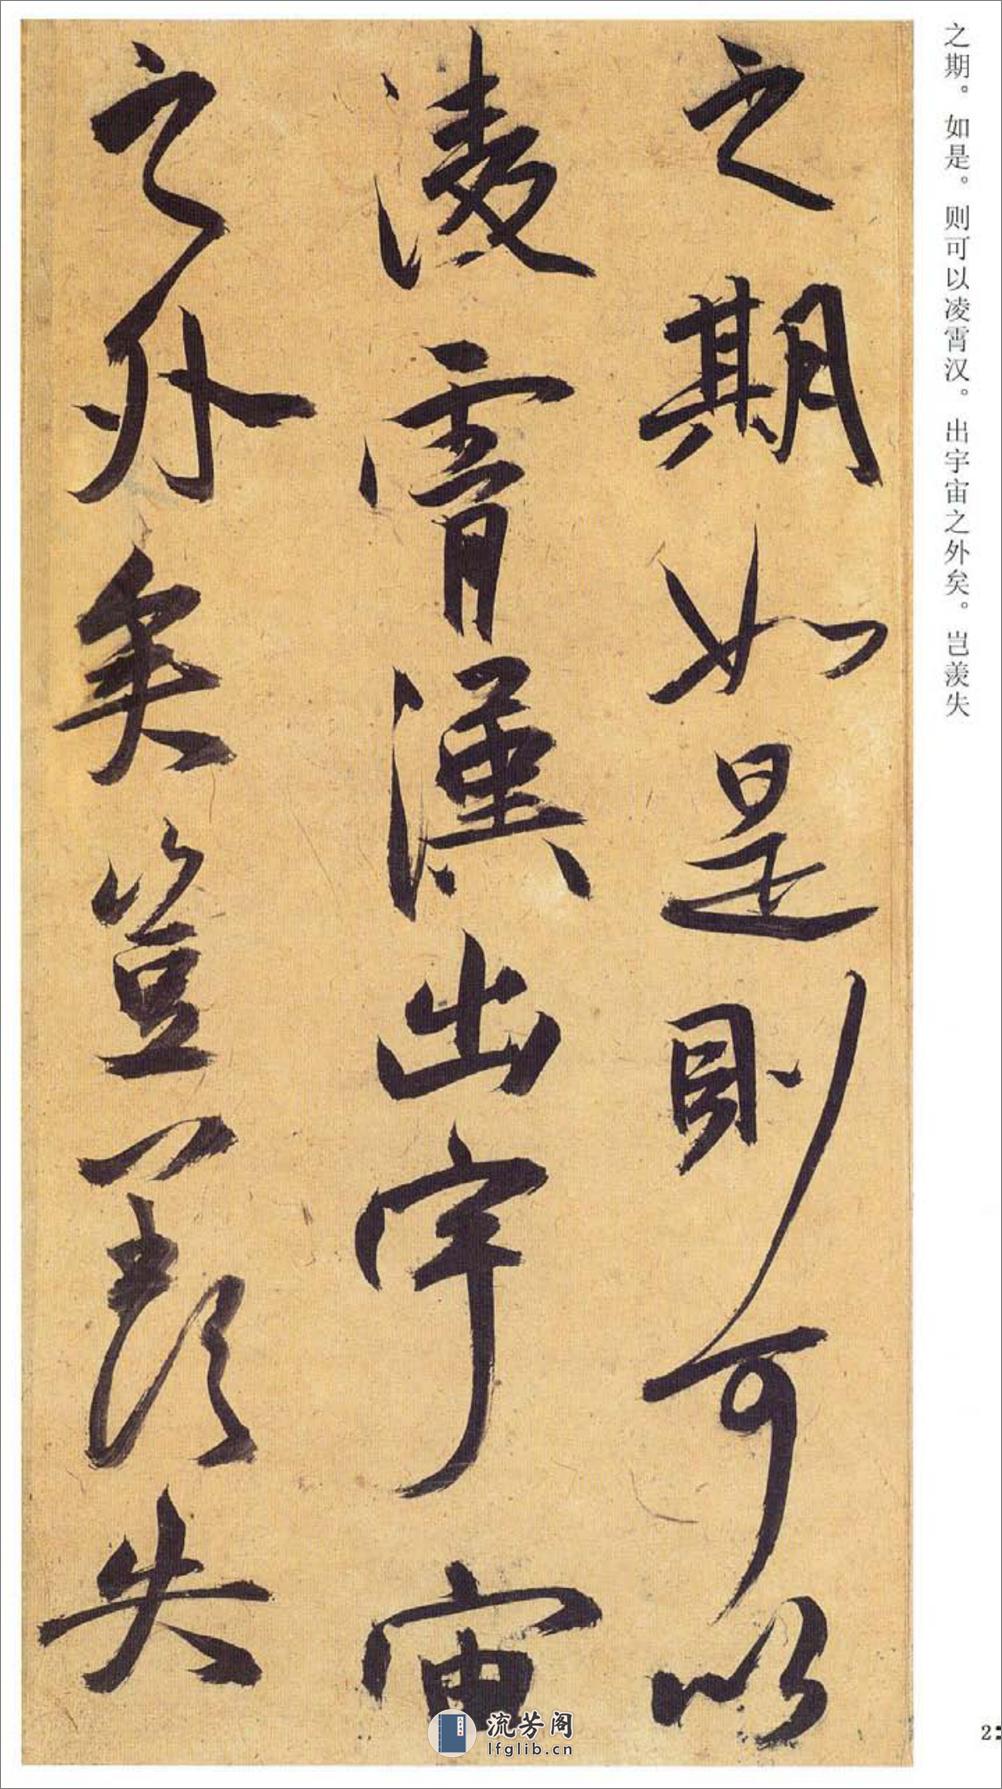 之期。如是。则可以凌霄汉。出宇宙之外矣。岂羡失
之期如是則可以
凌霄漢出宇宙
之外矣豈羨失
流芳阁
lfglib.cn
2